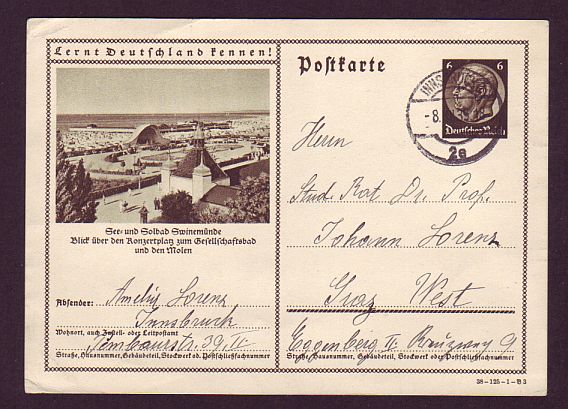 Lernt Deutschland kennen!
See- und Solbad Swinemünde
Blick über den Konzertplatz zum Gesellschaftsbad
und den Molen
Absender: Amelie Lorenz
Innsbruck
Wohnort, auch Zustell- oder Leitpostamt
39/II
Straße, Hausnummer, Gebäudeteil, Stockwerk od. Postschließfachnummer
Postkarte
6 6
Deutsches Reich
INNSBRUCK
-8.
2a
Herrn
Stud. Rat Dr. Prof.
Johann Lorenz
Graz West
Eggenberg II. 9
Straße, Hausnummer, Gebäudeteil, Stockwerk oder Postschließfachnummer
38-125-1-B3